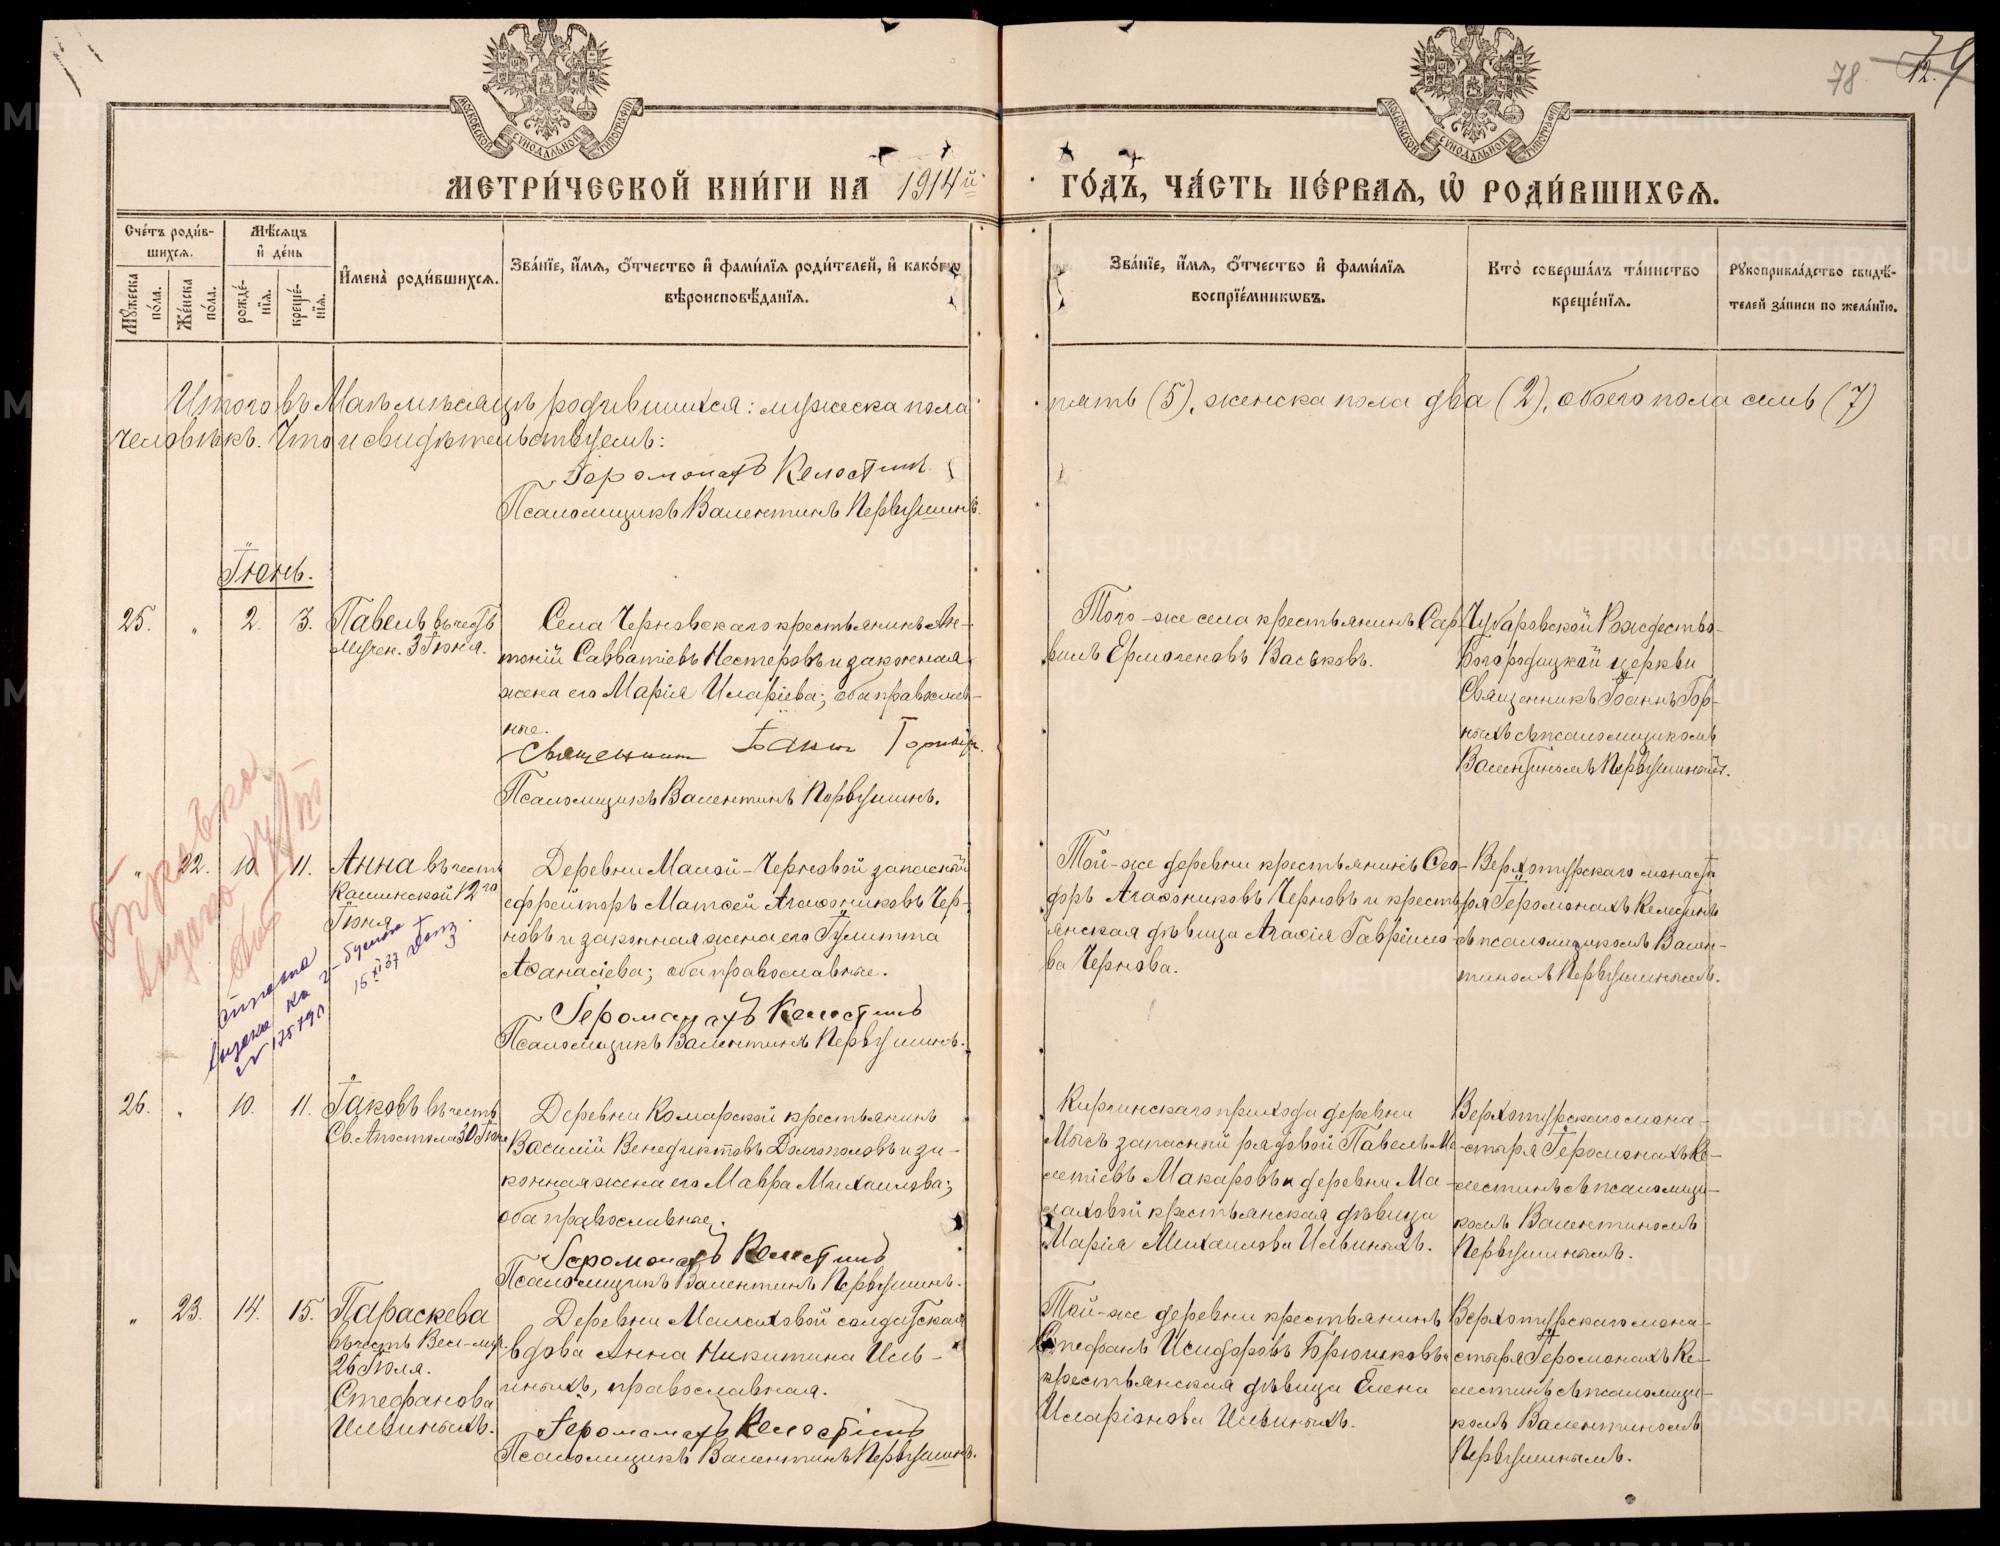 78. 12. 79
МОСКОВСКОЙ СѴНОДАЛЬНОЙ ТИПОГРАФІИ
МОСКОВСКОЙ СѴНОДАЛЬНОЙ ТИПОГРАФІИ
МЕТРИ́ЧЕСКОЙ КНИ́ГИ НА 1914й
ГО́ДЪ, ЧА́СТЬ ПЕ́РВАЯ, Ѡ҆ РОДИ́ВШИХСЯ.
Сче́тъ роди́в-
шихся.
Мѹ́жеска по́ла.
Же́нска по́ла.
Мѣ́сяцъ
и҆ де́нь
рожде́-
нїя.
креще́-
нїя.
И҆мена̀ роди́вшихся.
Зва́нїе, и҆́мя, ѻ҆́тчество и҆ фами́лїя роди́телей, и҆ како́гѡ
вѣроисповѣ́данїя.
Зва́нїе, и҆́мя, ѻ҆́тчество и҆ фами́лїя
воспрїе́мникѡвъ.
Кто̀ соверша́лъ та́инство
креще́нїя.
Рѹкоприкла́дство свидѣ́-
телей за́писи по жела́нїю.
Итого въ Маѣ мѣсяцѣ родившихся: мужеска пола пять (5), женска пола два (2), обоего пола семь (7)
человѣкъ. Что и свидѣтельствуемъ:
Іеромонахъ Келестинъ
Псаломщикъ Валентинъ Первушинъ.
Іюнь.
25. " 2. 3.
Павелъ въ честь
мучен. 3 Іюня.
Села Черновскаго крестьянинъ Ан-
тоній Савватіевъ Нестеровъ и законная
жена его Марія Иларіева; оба православ-
ные.
Священник Іоанн Горных.
Псаломщикъ Валентинъ Первушинъ.
Того-же села крестьянинъ Сар-
Ермогеновъ Васьковъ.
Чубаровской Рождество-
Богородицкой церкви
Священникъ Іоаннъ Гор-
ныхъ съ псаломщикомъ
Валентиномъ Первушинымъ.
" 22. 10. 11.
Анна въ честь
Кашинской 12го
Іюня
Деревни Малой-Черновой запасной
ефрейторъ Матѳей Агаѳониковъ Чер-
новъ и законная жена его Іулитта
Аѳанасіева; оба православные.
Іеромонахъ Келестинъ
Псаломщикъ Валентинъ Первушинъ.
Той-же деревни крестьянинъ Ѳео-
доръ Агаѳониковъ Черновъ и кресть-
янская дѣвица Агаѳія Гавріило-
ва Чернова.
Верхотурскаго монасты-
ря Іеромонахъ Келестинъ
съ псаломщикомъ Вален-
тиномъ Первушинымъ.
выдано
15 XI 37
№ 175790
26. " 10. 11.
Іаковъ въ честь
Св. Апостола 30 Іюня
Деревни Комарской крестьянинъ
Василій Венедиктовъ Долгополовъ и за-
конная жена его Мавра Михаилова;
оба православные.
Іеромонахъ Келестинъ
Псаломщикъ Валентинъ Первушинъ.
Киргинскаго прихода деревни
Мысъ запасный рядовой Павелъ Ме-
летіевъ Макаровъ и деревни Ма-
лаховой крестьянская дѣвица
Марія Михаилова Ильиныхъ.
Верхотурскаго мона-
стыря Іеромонахъ Ке-
лестинъ съ псаломщи-
комъ Валентиномъ
Первушинымъ.
" 23. 14. 15.
Параскева
въ честь Вел-муч.
26 Іюля.
Стефанова
Ильиныхъ.
Деревни Малаховой солдатская
вдова Анна Никитина Иль-
иныхъ, православная.
Іеромонахъ Келестинъ
Псаломщикъ Валентинъ Первушинъ.
Той-же деревни крестьянинъ
Стефанъ Исидоровъ Брюховъ и
крестьянская дѣвица Елена
Иларіонова Ильиныхъ.
Верхотурскаго мона-
стыря Іеромонахъ Ке-
лестинъ съ псаломщи-
комъ Валентиномъ
Первушинымъ.
METRIKI.GASO-URAL.RU